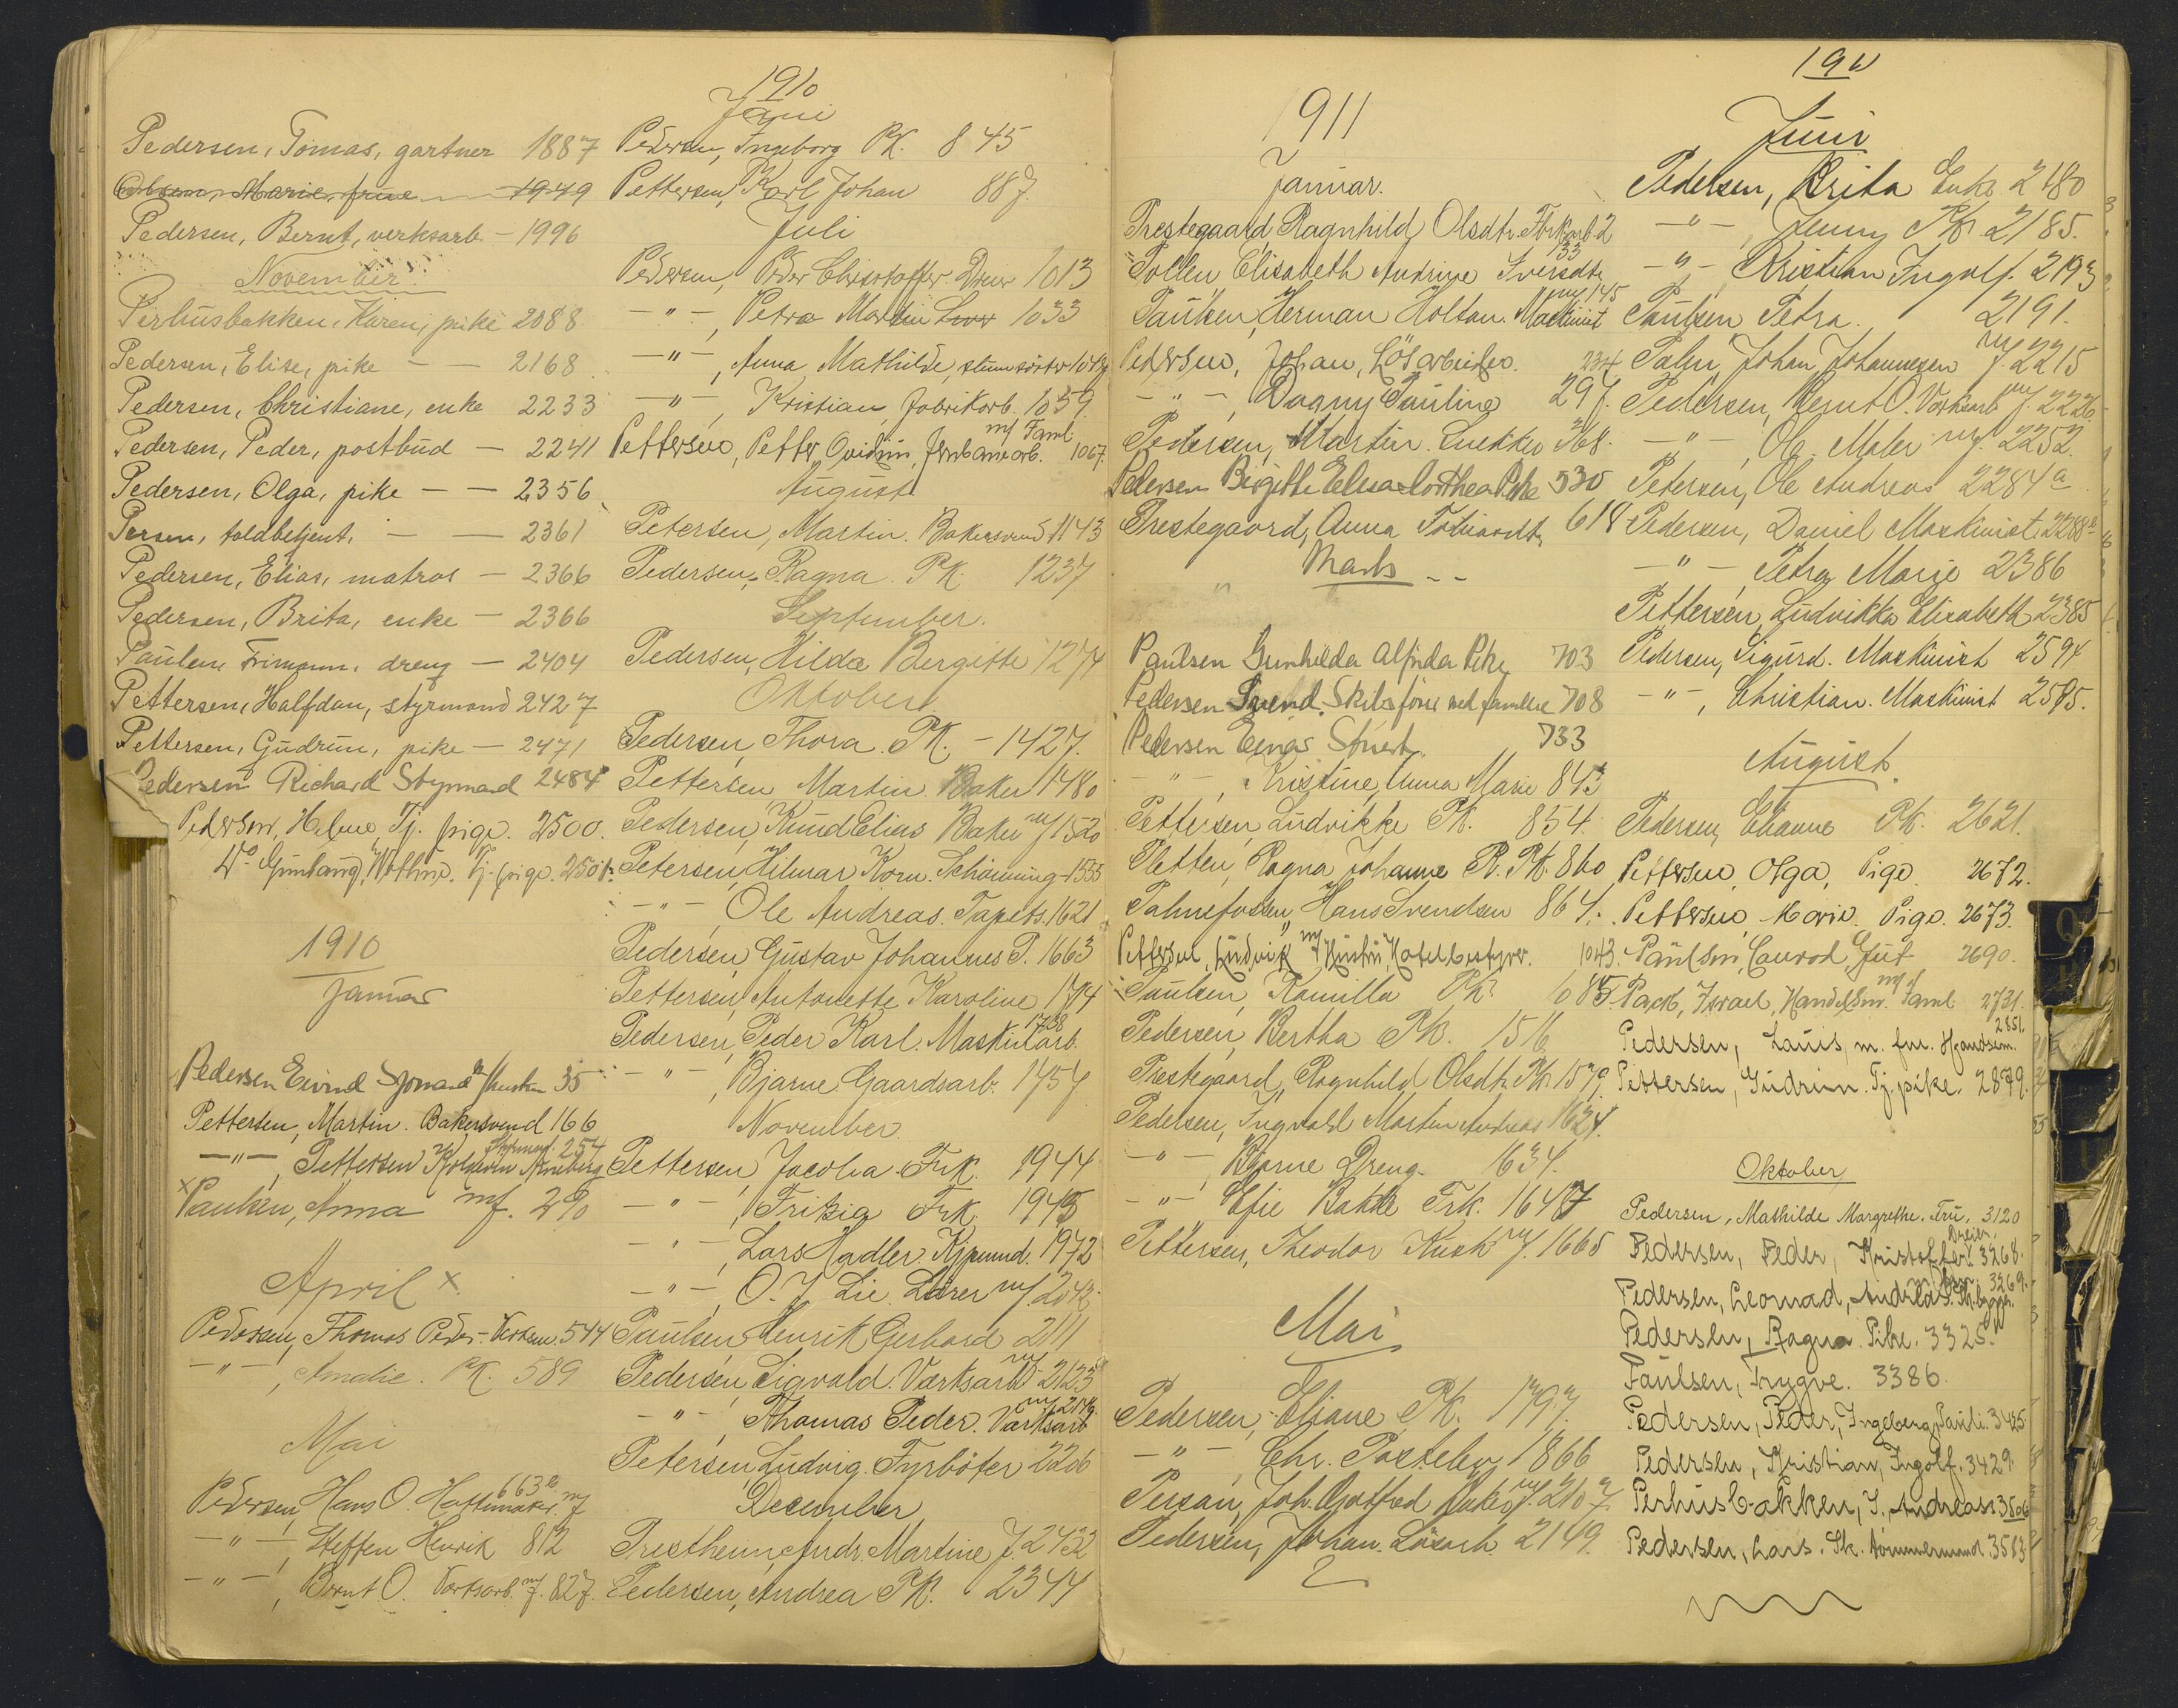 Pedersen, Tomas, gartner 1887
Marie, frue 1949
Pedersen, Bernt, verksarb. - 1996
November.
Perhusbakken, Karen, pike 2088
Pedersen, Elise, pike - - 2168
Pedersen, Christiane, enke 2233
Pedersen, Peder, postbud - 2241
Pedersen, Olga, pike - - 2356
Persen, toldbetjent. - - 2361
Pedersen, Elias, matros - 2366
Pedersen, Brita, enke - 2366
Paulsen Frimann, dreng - 2404
Pettersen, Halfdan, styrmand 2427
Pettersen, Gudrun, pike - 2471
Pedersen Richard Styrmand 2484
Pedersen, Helene, Tj. pige. 2500.
Do Tj. pige. 2501.
1910
Januar
Pedersen Eivind 35
Pettersen, Martin. Bakersvend 166
-"-, Pettersen Styrmand. 254
x Paulsen, Anna mf. 290
April x
Pedersen, Thomas Peder. 544
-"-, Amalie. PK. 589
Mai
Pedersen, Hans O. Hattemaker. m/f 663b
-"-, Steffen Henrik 812
-"-, Bernt O. Værksarb. m/f. 827.
1910
Juni
Pedersen, Ingeborg PK. 845
Pettersen, Karl Johan 887.
Juli
Pedersen, Peder Christoffer 1013
-"-, Petra 1033
-"-, Anna Mathilde,
-"-, Kristian, Fabrikarb. 1059.
Pettersen, Petter Ovidius, Jernbanearb. m/ Faml. 1067.
August
Petersen, Martin. Bakersvend 1143
Pedersen, Ragna. PK. 1237
September.
Pedersen, Hilda Bergitte 1274
Oktober.
Pedersen, Thora. PK. - 1427.
Pettersen Martin Baker 1480
Pedersen, Knud Elias Baker m/f 1520
Petersen, Hilmar Korn. Schamming - 1555
-"- Ole Andreas. Tapets. 1621
Pedersen, Gustav Johannes P. 1663
Pettersen, Antonette Karoline 1714
Pedersen, Peder Karl. Maskinarb. 1738
-"-, Bjarne. Gaardsarb. 1757
November.
Pettersen, Jacoba. Frk. 1944
-"-, Frk. 1945
-"-, Lars Hadler. Kjpmnd. 1972
-"-, O. J. Lie. Lærer m/f.
Paulsen, Henrik Gerhard 2111
Pedersen Sigvald. Værksarb. m/f 2123
-"-, Thomas Peder. Værksarb.
Petersen, Ludvig. Fyrbøter 2206
December
Prestheim, Andr. Martine J. 2432
Pedersen, Andrea PK. 2344
1911
Januar.
Prestegaard, Ragnhild Olsdtr. Fbrkarb. 2
Pollen, Elisabeth Andrine Iversdtr. 33
Paulsen, Herman Holtan. Maskinist m/f 145
Pedersen, Johan, Løsarbeider. 234
-"-, Dagny Pauline 297.
Pedersen, Martin. Snekker 368.
Pedersen Birgitte Elisa Dorthea Pike 530
Prestegaard, Anna 618
Marts - -
Paulsen Gunhilda Alfrida Pike 703
Pedersen Svend. Skibsfører med familie 708
Pedersen Einar Stuert. 733
-"-, Kristine, Anna Marie 843
Pettersen, Ludvikke PK. 854.
Pletten, Ragna Johanne R. PK. 860
Palmefossen, Hans Svendsen 864.
Pettersen, Ludvik m/ Hustru, Hotelbestyrer. 1043.
Paulsen, Kamilla PK. 1085.
Pedersen, Bertha PK. 1516
Prestegaard, Ragnhild Olsdtr. PK.
Pedersen, Ingvald Martin Andreas 1624.
-"-, Bjarne Dreng. 1634.
-"- Efie Bakke Frk. 1647
Pettersen, Theodor Kusk m/f. 1665
Mai
Pedersen, Eliane PK. 1797.
-"-, Chr. 1866
Persan, Joh. Gotfred m/f. 2107
Pedersen, Johan. Løsarb. 2149.
1911
Juni
Pedersen, Brita Enke 2180
-"-, Jenny PK. 2185.
-"-, Kristian Ingolf. 2193
Paulsen Petra. 2191.
Palm, Johan Johannesen m/f. 2215
Pedersen, Bernt O. Værksarb. m/f. 2226.
-"-, Ole. Maler m/f. 2252.
Petersen, Ole Andreas 2284a
Pedersen, Daniel Maskinist. 2288b
-"- Petra Marie 2386
Pettersen, Ludvikka Elisabeth 2385
Pedersen, Sigurd. Maskinist 2594
-"-, Christian. Maskinist 2595.
August.
Pedersen, Elianne PK. 2621.
Pettersen, Olga, Pige. 2672.
Pettersen, Marie. Pige. 2673.
Paulsen, Conrad, Gut 2690.
Israel, Handelsm. m/f Faml. 2731.
Pedersen, Lauis, m. fru. Hjandsem. 2851.
Pettersen, Gudrun. Tj. pike. 2879.
Oktober
Pedersen, Mathilde Margrethe. Fru. 3120
Pedersen, Peder, Kristoffer. Dreier. 3268.
Pedersen, Leonard, Andreas. 3269.
Pedersen, Ragna. Pike. 3325.
Paulsen, Trygve. 3386.
Pedersen, Peder, Ingeberg, Pauli. 3425.
Pedersen, Kristian, Ingolf. 3429.
Perhusbakken, J. Andreas 3506
Pedersen, Lars. Sk. tømmermand 3583
Q